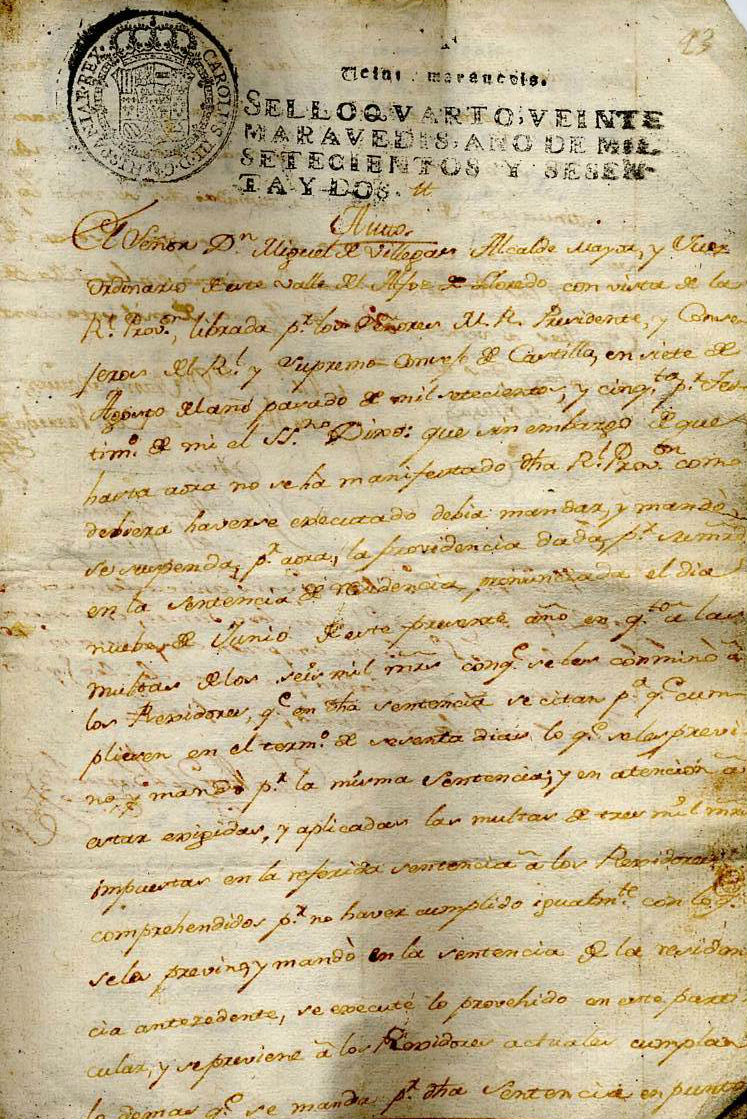 43
CAROLUS III D G HISPANIAR REX
Veinte maravedis.
SELLO QVARTO, VEINTE
MARAVEDIS, AÑO DE MIL
SETECIENTOS Y SESEN-
TA Y DOS.
Auto
El Señor Dn Miguel de Villegas Alcalde mayor, y Juez
ordinario de este valle del Alfoz de Lloredo con vista de la
Rl Provon, librada pr los Señores M. R. Presidente, y Conse
jeros del Rl y Supremo Consejo de Castilla, en siete de
Agosto del año pasado de mil setecientos, y cinqta pr Tes
timo de mi el SSno Dixo: que sin embargo de que
hasta aora no se ha manifestado dha Rl Provon como
debiera haverse executado debia mandar, y mandò
se suspenda, pr aora, la providencia dada, pr su mrd
en la sentencia de residencia pronunciada el dia
nuebe de Junio de este presente año en qto a las
multas de los seis mil mrs con qe se les conminò à
los Rexidores, qe en dha sentencia se citan pa qe cum
pliesen en el termo de sesenta dias lo qe se les previ
no, y mandò pr la misma sentencia; y en atencion à
estar exigidas, y aplicadas las multas de tres mil mrs
impuestas en la referida sentencia à los Rexidores
comprehendidos pr no haver cumplido igualmte con lo qe
se les previno, y mandò en la sentencia de la residen
cia antecedente, se execute lo provehido en este parti
cular, y se previene à los Rexidores actuales cumplan
lo demas qe se manda pr dha Sentencia en punto